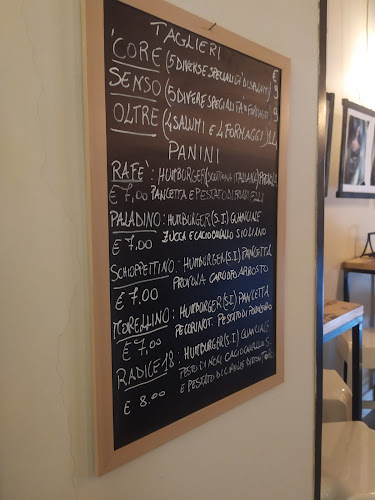 TAGLIERI €
'CORE (5 DIVERSE SPECIALITÀ DI SALUMI) 9
SENSO (5 DIVERE SPECIALITÀ FORMAGGI) 9
OLTRE (4 SALUMI E 4 FORMAGGI) 14
PANINI
RAFÈ: HUMBURGER (SCOTTONA ITALIANA)
€ 7,00 PANCETTA E PESTATO DI
PALADINO: HUMBURGER (S.I) GUANCIALE
€ 7.00 ZUCCA E CACIOCAVALLO SILANO
SCHIOPPETTINO: HUMBURGER (S.I) PANCETTA
€ 7.00 PROVOLA ARROSTO
TORELLINO: HUMBURGER (S.I) PANCETTA
€ 7,00 PECORINO T. PESTATO DI POMODORO
RADICE 18: HUMBURGER (S.I) GUANCIALE
PESTO DI NOCI CACIOCAVALLO S.
€ 8.00 E PESTATO DI